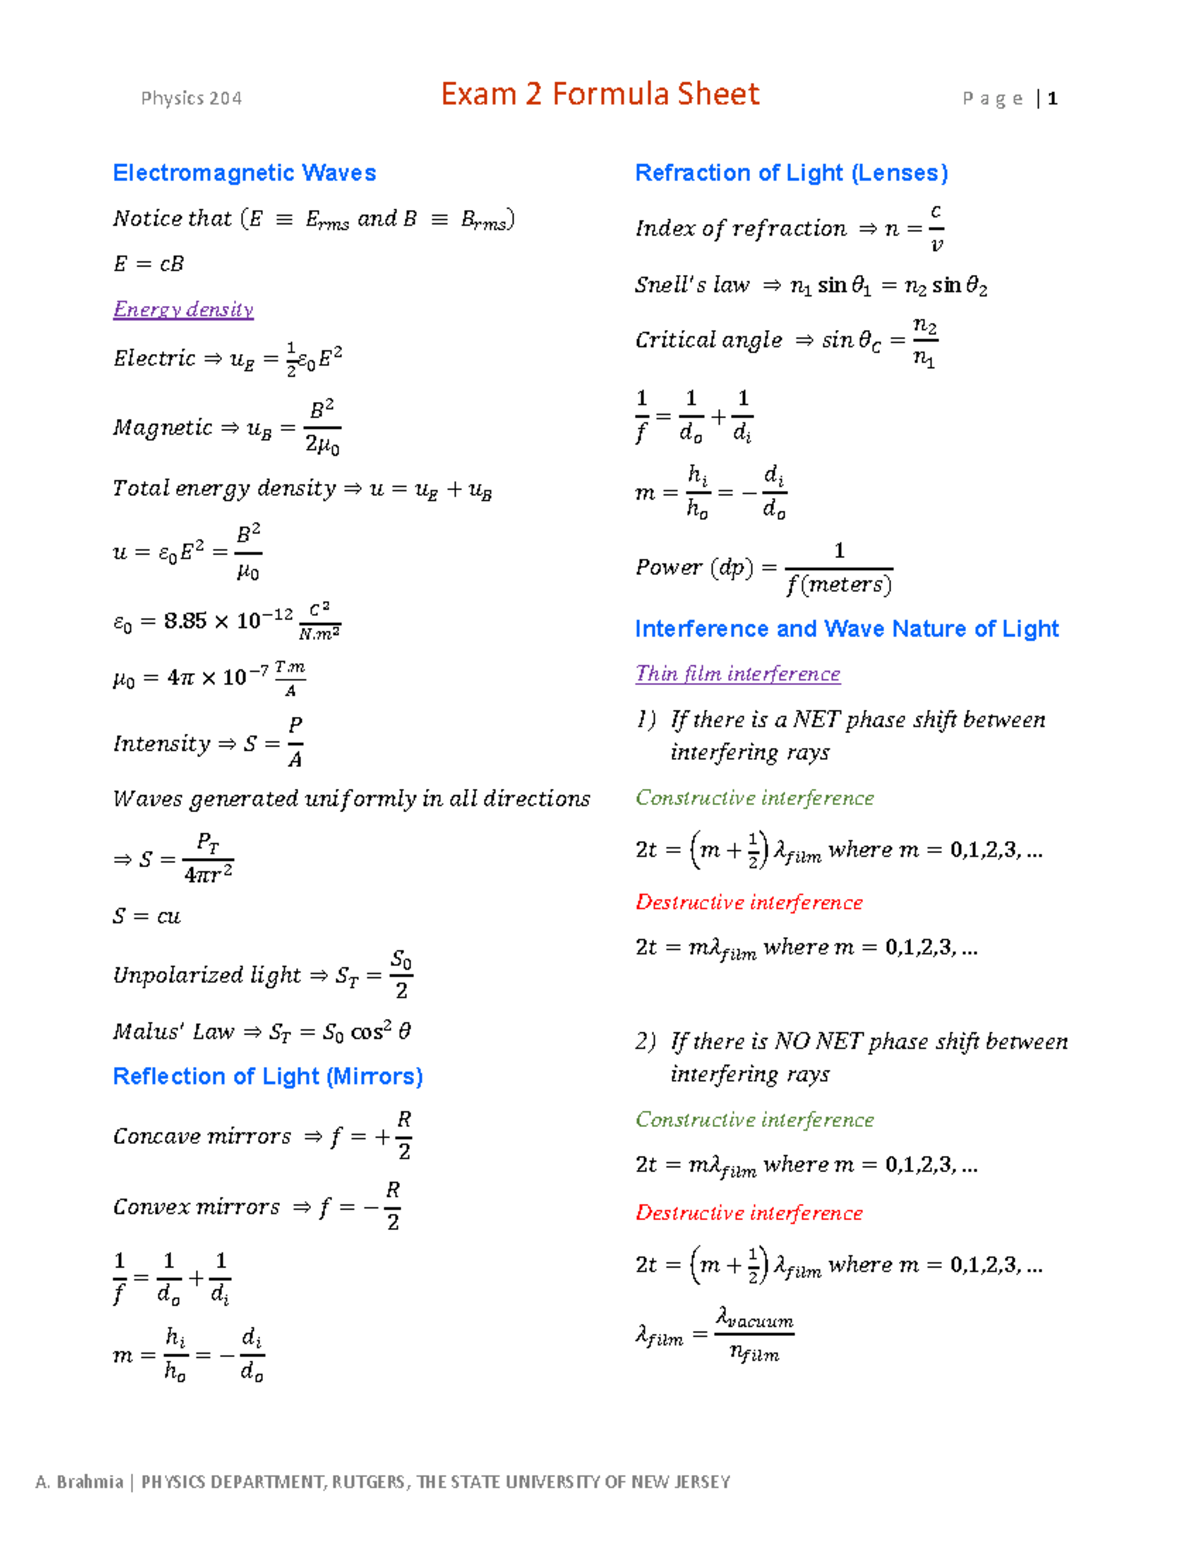 Physics 204 Exam 2 Formula Sheet P a g e | 1
Electromagnetic Waves
Notice that (E ≡ E_rms and B ≡ B_rms)
E = cB
Energy density
Electric ⇒ u_E = 1/2 ε₀E²
Magnetic ⇒ u_B = B²/2μ₀
Total energy density ⇒ u = u_E + u_B
u = ε₀E² = B²/μ₀
ε₀ = 8.85 × 10⁻¹² C²/N.m²
μ₀ = 4π × 10⁻⁷ T.m/A
Intensity ⇒ S = P/A
Waves generated uniformly in all directions
⇒ S = P_T/4πr²
S = cu
Unpolarized light ⇒ S_T = S₀/2
Malus' Law ⇒ S_T = S₀ cos² θ
Reflection of Light (Mirrors)
Concave mirrors ⇒ f = + R/2
Convex mirrors ⇒ f = − R/2
1/f = 1/d_o + 1/d_i
m = h_i/h_o = − d_i/d_o
Refraction of Light (Lenses)
Index of refraction ⇒ n = c/v
Snell's law ⇒ n₁ sin θ₁ = n₂ sin θ₂
Critical angle ⇒ sin θ_C = n₂/n₁
1/f = 1/d_o + 1/d_i
m = h_i/h_o = − d_i/d_o
Power (dp) = 1/f(meters)
Interference and Wave Nature of Light
Thin film interference
1) If there is a NET phase shift between
interfering rays
Constructive interference
2t = (m + 1/2) λ_film where m = 0,1,2,3, …
Destructive interference
2t = mλ_film where m = 0,1,2,3, …
2) If there is NO NET phase shift between
interfering rays
Constructive interference
2t = mλ_film where m = 0,1,2,3, …
Destructive interference
2t = (m + 1/2) λ_film where m = 0,1,2,3, …
λ_film = λ_vacuum/n_film
A. Brahmia | PHYSICS DEPARTMENT, RUTGERS, THE STATE UNIVERSITY OF NEW JERSEY